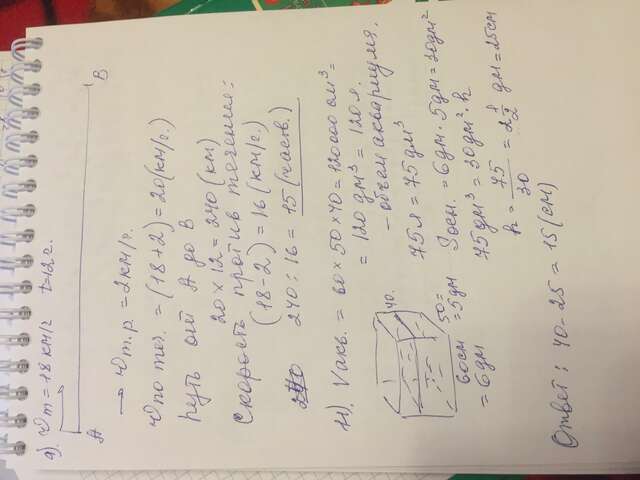 9). Vт = 18 км/г t=12 г.
A B
→ Vт.р. = 2 км/г.
Vпо теч. = (18+2) = 20 (км/г.)
путь от А до В
20 × 12 = 240 (км)
скорость против течения:
(18-2) = 16 (км/г.)
240 : 16 = 15 (часов.)
11). Vакв. = 60 × 50 × 40 = 120000 см³ =
= 120 дм³ = 120 л.
- объем аквариума.
40.
50 =
= 5 дм
60 см
= 6 дм
75 л = 75 дм³
Sосн. = 6 дм · 5 дм = 30 дм²
75 дм³ = 30 дм² · h
h = 75/30 = 2 1/2 дм = 25 см
Ответ: 40 - 25 = 15 (см)